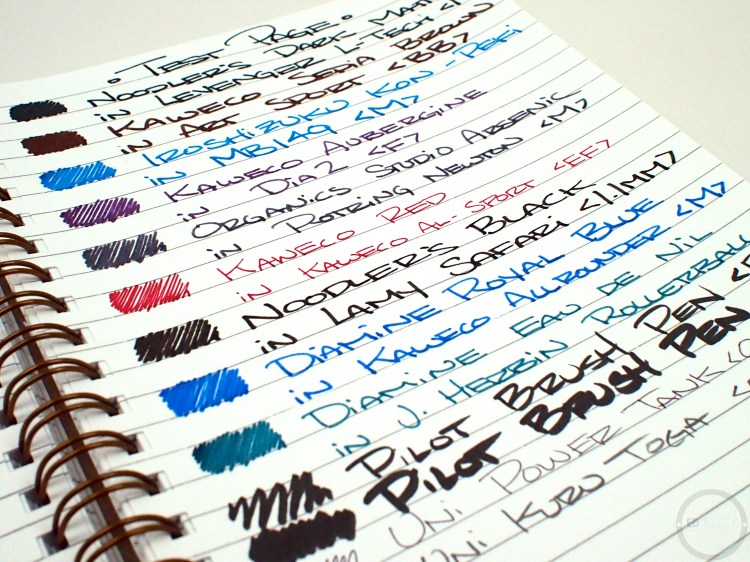 · Test Page ·
Noodler's Dark
in Levenger L-Tech
Kaweco Sepia Brown
in Art Sport <BB>
Iroshizuku Kon-Peki
in MB149 <M>
Kaweco Aubergine
in Dia2 <F>
Organics Studio Arsenic
in Rotring Newton <M>
Kaweco Red <EF>
in Kaweco Al-Sport
Noodler's Black
in Lamy Safari <1.1mm>
Diamine Royal Blue
in Kaweco Allrounder <M>
Diamine Eau de Nil
in J. Herbin Rollerball
Pilot Brush Pen
Pilot Brush Pen
Uni Power Tank
Uni Kuru Toga